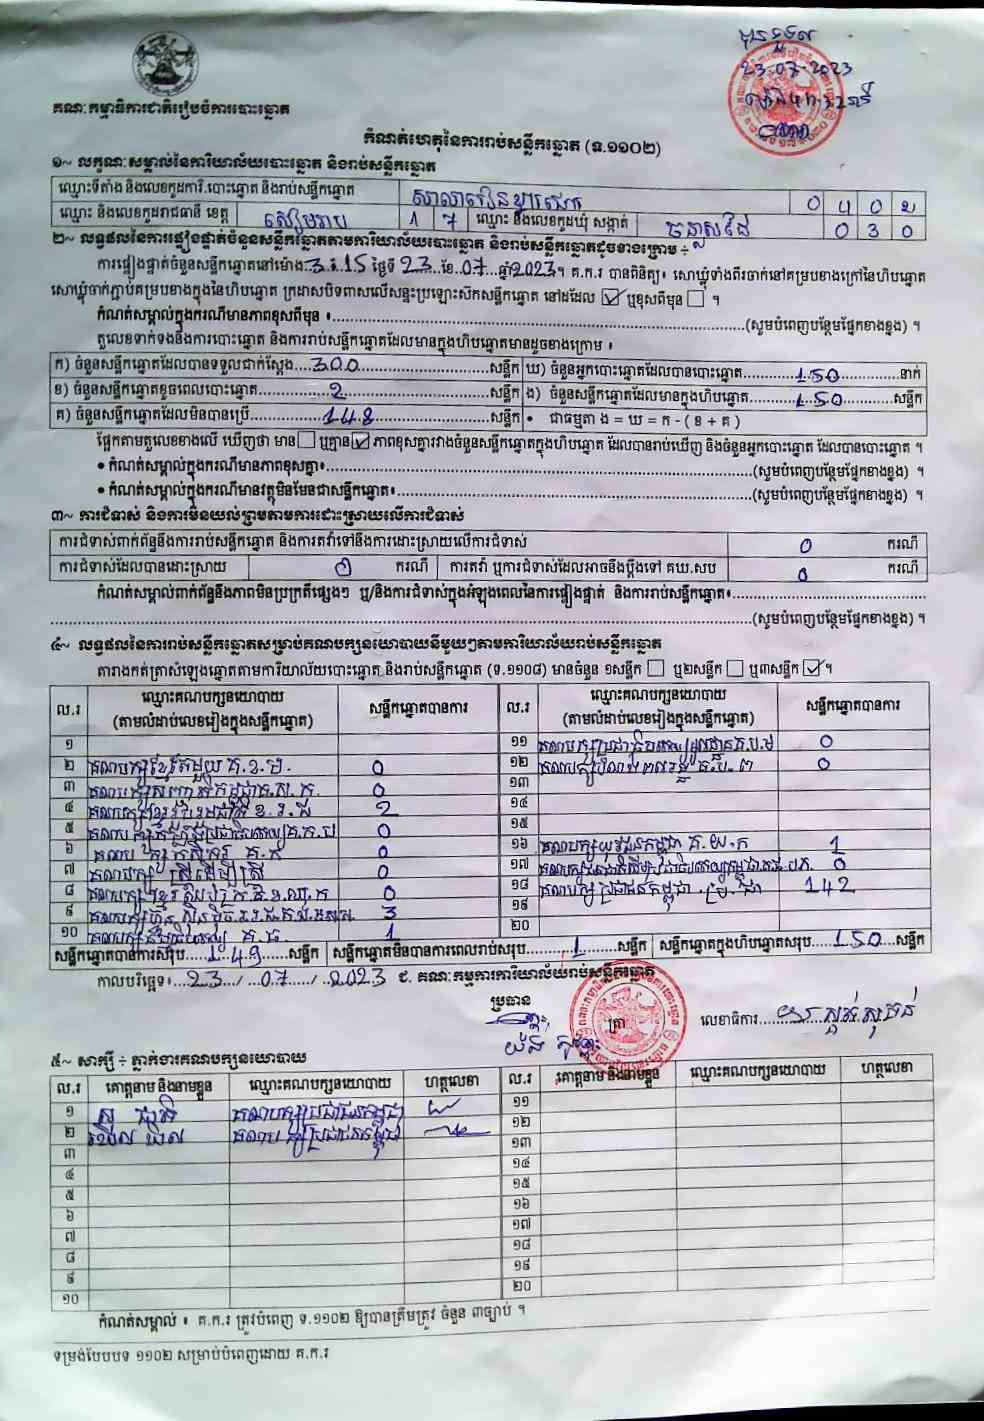 23-07-2023
គណៈកម្មាធិការជាតិរៀបចំការបោះឆ្នោត
កំណត់ហេតុនៃការរាប់សន្លឹកឆ្នោត (ទ.១១០២)
១~ លក្ខណៈសម្គាល់នៃការិយាល័យបោះឆ្នោត និងរាប់សន្លឹកឆ្នោត
ឈ្មោះទីតាំង និងលេខកូដការិ.បោះឆ្នោត និងរាប់សន្លឹកឆ្នោត
ឈ្មោះ និងលេខកូដរាជធានី ខេត្ត សៀមរាប 1 7 ឈ្មោះ និងលេខកូដឃុំ សង្កាត់ ចន្លាសដៃ 0 3 0
២~ លទ្ធផលនៃការផ្ទៀងផ្ទាត់ចំនួនសន្លឹកឆ្នោតតាមការិយាល័យបោះឆ្នោត និងរាប់សន្លឹកឆ្នោតដូចខាងក្រោម ÷
ការផ្ទៀងផ្ទាត់ចំនួនសន្លឹកឆ្នោតនៅម៉ោង 3 : 15 ថ្ងៃទី 23 ខែ 07 ឆ្នាំ 2023 ។ គ.ក.រ បានពិនិត្យ៖ សោឃ្លុំទាំងពីរចាក់នៅគម្របខាងក្រៅនៃហិបឆ្នោត
សោឃ្លុំចាក់ភ្ជាប់គម្របខាងក្នុងនៃហិបឆ្នោត ក្រដាសបិទពាសលើសន្ទះប្រឡោះស៊កសន្លឹកឆ្នោត នៅដដែល ☑ ឬខុសពីមុន ☐ ។
កំណត់សម្គាល់ក្នុងករណីមានភាពខុសពីមុន ៖ (សូមបំពេញបន្ថែមផ្នែកខាងខ្នង) ។
តួលេខទាក់ទងនឹងការបោះឆ្នោត និងការរាប់សន្លឹកឆ្នោតដែលមានក្នុងហិបឆ្នោតមានដូចខាងក្រោម ៖
ក) ចំនួនសន្លឹកឆ្នោតដែលបានទទួលជាក់ស្តែង 300 សន្លឹក ឃ) ចំនួនអ្នកបោះឆ្នោតដែលបានបោះឆ្នោត 150 នាក់
ខ) ចំនួនសន្លឹកឆ្នោតខូចពេលបោះឆ្នោត 2 សន្លឹក ង) ចំនួនសន្លឹកឆ្នោតដែលមានក្នុងហិបឆ្នោត 150 សន្លឹក
គ) ចំនួនសន្លឹកឆ្នោតដែលមិនបានប្រើ 148 សន្លឹក • ជាធម្មតា ង = ឃ = ក - ( ខ + គ )
ផ្អែកតាមតួលេខខាងលើ ឃើញថា មាន ☐ ឬគ្មាន ☑ ភាពខុសគ្នារវាងចំនួនសន្លឹកឆ្នោតក្នុងហិបឆ្នោត ដែលបានរាប់ឃើញ និងចំនួនអ្នកបោះឆ្នោត ដែលបានបោះឆ្នោត ។
• កំណត់សម្គាល់ក្នុងករណីមានភាពខុសគ្នា៖ (សូមបំពេញបន្ថែមផ្នែកខាងខ្នង) ។
• កំណត់សម្គាល់ក្នុងករណីមានវត្ថុមិនមែនជាសន្លឹកឆ្នោត៖ (សូមបំពេញបន្ថែមផ្នែកខាងខ្នង) ។
៣~ ការជំទាស់ និងការមិនយល់ព្រមតាមការដោះស្រាយលើការជំទាស់
ការជំទាស់ពាក់ព័ន្ធនឹងការរាប់សន្លឹកឆ្នោត និងការតវ៉ាទៅនឹងការដោះស្រាយលើការជំទាស់ 0 ករណី
ការជំទាស់ដែលបានដោះស្រាយ 0 ករណី ការតវ៉ា ឬការជំទាស់ដែលអាចនឹងប្តឹងទៅ គឃ.សប 0 ករណី
កំណត់សម្គាល់ពាក់ព័ន្ធនឹងភាពមិនប្រក្រតីផ្សេងៗ ឬ/និងការជំទាស់ក្នុងអំឡុងពេលនៃការផ្ទៀងផ្ទាត់ និងការរាប់សន្លឹកឆ្នោត៖
(សូមបំពេញបន្ថែមផ្នែកខាងខ្នង) ។
៤~ លទ្ធផលនៃការរាប់សន្លឹកឆ្នោតសម្រាប់គណបក្សនយោបាយនីមួយៗតាមការិយាល័យរាប់សន្លឹកឆ្នោត
តារាងកត់ត្រាសំឡេងឆ្នោតតាមការិយាល័យបោះឆ្នោត និងរាប់សន្លឹកឆ្នោត (ទ.១១០៨) មានចំនួន ១សន្លឹក ☐ ឬ២សន្លឹក ☐ ឬ៣សន្លឹក ☑ ។
ល.រ ឈ្មោះគណបក្សនយោបាយ (តាមលំដាប់លេខរៀងក្នុងសន្លឹកឆ្នោត) សន្លឹកឆ្នោតបានការ ល.រ ឈ្មោះគណបក្សនយោបាយ (តាមលំដាប់លេខរៀងក្នុងសន្លឹកឆ្នោត) សន្លឹកឆ្នោតបានការ
១ ១១ 0
២ គណបក្សខ្មែរតែមួយ គ.ខ.ម. 0 ១២ 0
៣ 0 ១៣
៤ 2 ១៤
៥ 0 ១៥
៦ គណបក្សកសិករ គ.ក 0 ១៦ គណបក្សយុវជនកម្ពុជា គ.យ.ក 1
៧ គណបក្ស ស្ត្រីដើម្បីស្ត្រី 0 ១៧ 0
៨ 0 ១៨ គណបក្សប្រជាជនកម្ពុជា 142
៩ 3 ១៩
១០ 1 ២០
សន្លឹកឆ្នោតបានការសរុប 149 សន្លឹក សន្លឹកឆ្នោតមិនបានការពេលរាប់សរុប 1 សន្លឹក សន្លឹកឆ្នោតក្នុងហិបឆ្នោតសរុប 150 សន្លឹក
កាលបរិច្ឆេទ៖ 23 / 07 / 2023 ជ. គណៈកម្មការការិយាល័យរាប់សន្លឹកឆ្នោត
ប្រធាន
ត្រា លេខាធិការ
៥~ សាក្សី ÷ ភ្នាក់ងារគណបក្សនយោបាយ
ល.រ គោត្តនាម និងនាមខ្លួន ឈ្មោះគណបក្សនយោបាយ ហត្ថលេខា ល.រ គោត្តនាម និងនាមខ្លួន ឈ្មោះគណបក្សនយោបាយ ហត្ថលេខា
១ គណបក្សប្រជាជនកម្ពុជា ១១
២ គណបក្សប្រជាជនកម្ពុជា ១២
៣ ១៣
៤ ១៤
៥ ១៥
៦ ១៦
៧ ១៧
៨ ១៨
៩ ១៩
១០ ២០
កំណត់សម្គាល់ ៖ គ.ក.រ ត្រូវបំពេញ ទ.១១០២ ឱ្យបានត្រឹមត្រូវ ចំនួន ៣ច្បាប់ ។
ទម្រង់បែបបទ ១១០២ សម្រាប់បំពេញដោយ គ.ក.រ